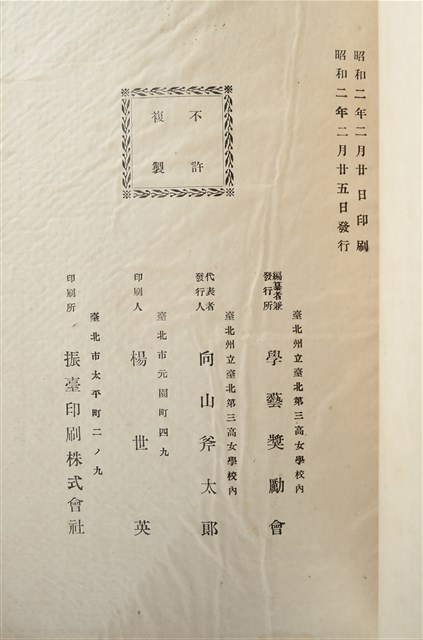 昭和二年二月廿日印刷
昭和二年二月廿五日發行
不許
複製
臺北州立臺北第三高女學校內
編纂者兼
發行所
學藝奬勵會
臺北州立臺北第三高女學校內
代表者
發行人
向山斧太郎
臺北市元園町四九
印刷人
楊世英
臺北市太平町二ノ九
印刷所
振臺印刷株式會社